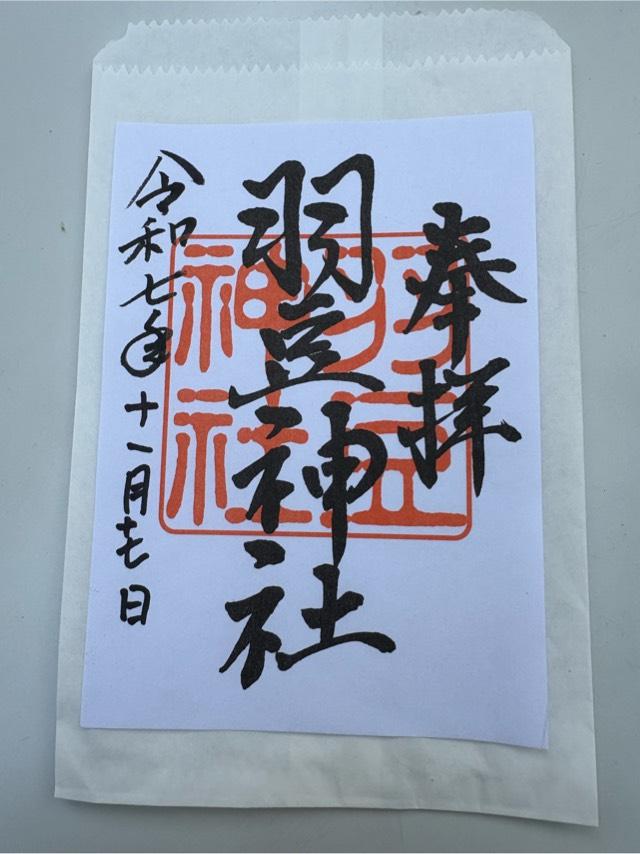 奉拝
羽豆神社
羽豆神社
令和七年十一月十七日